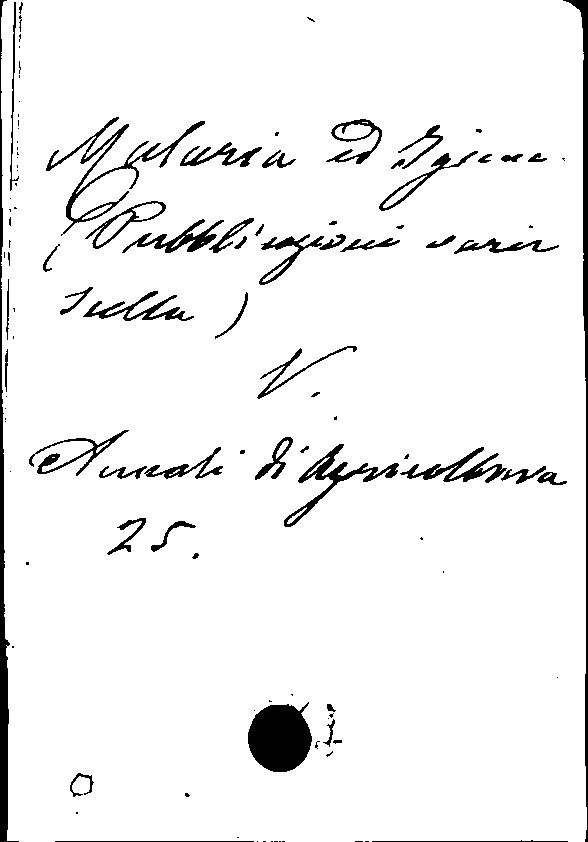 Malaria ed Igiene.
(Pubblicazioni varie
sulla)
V.
Annali di Agricoltura
25.